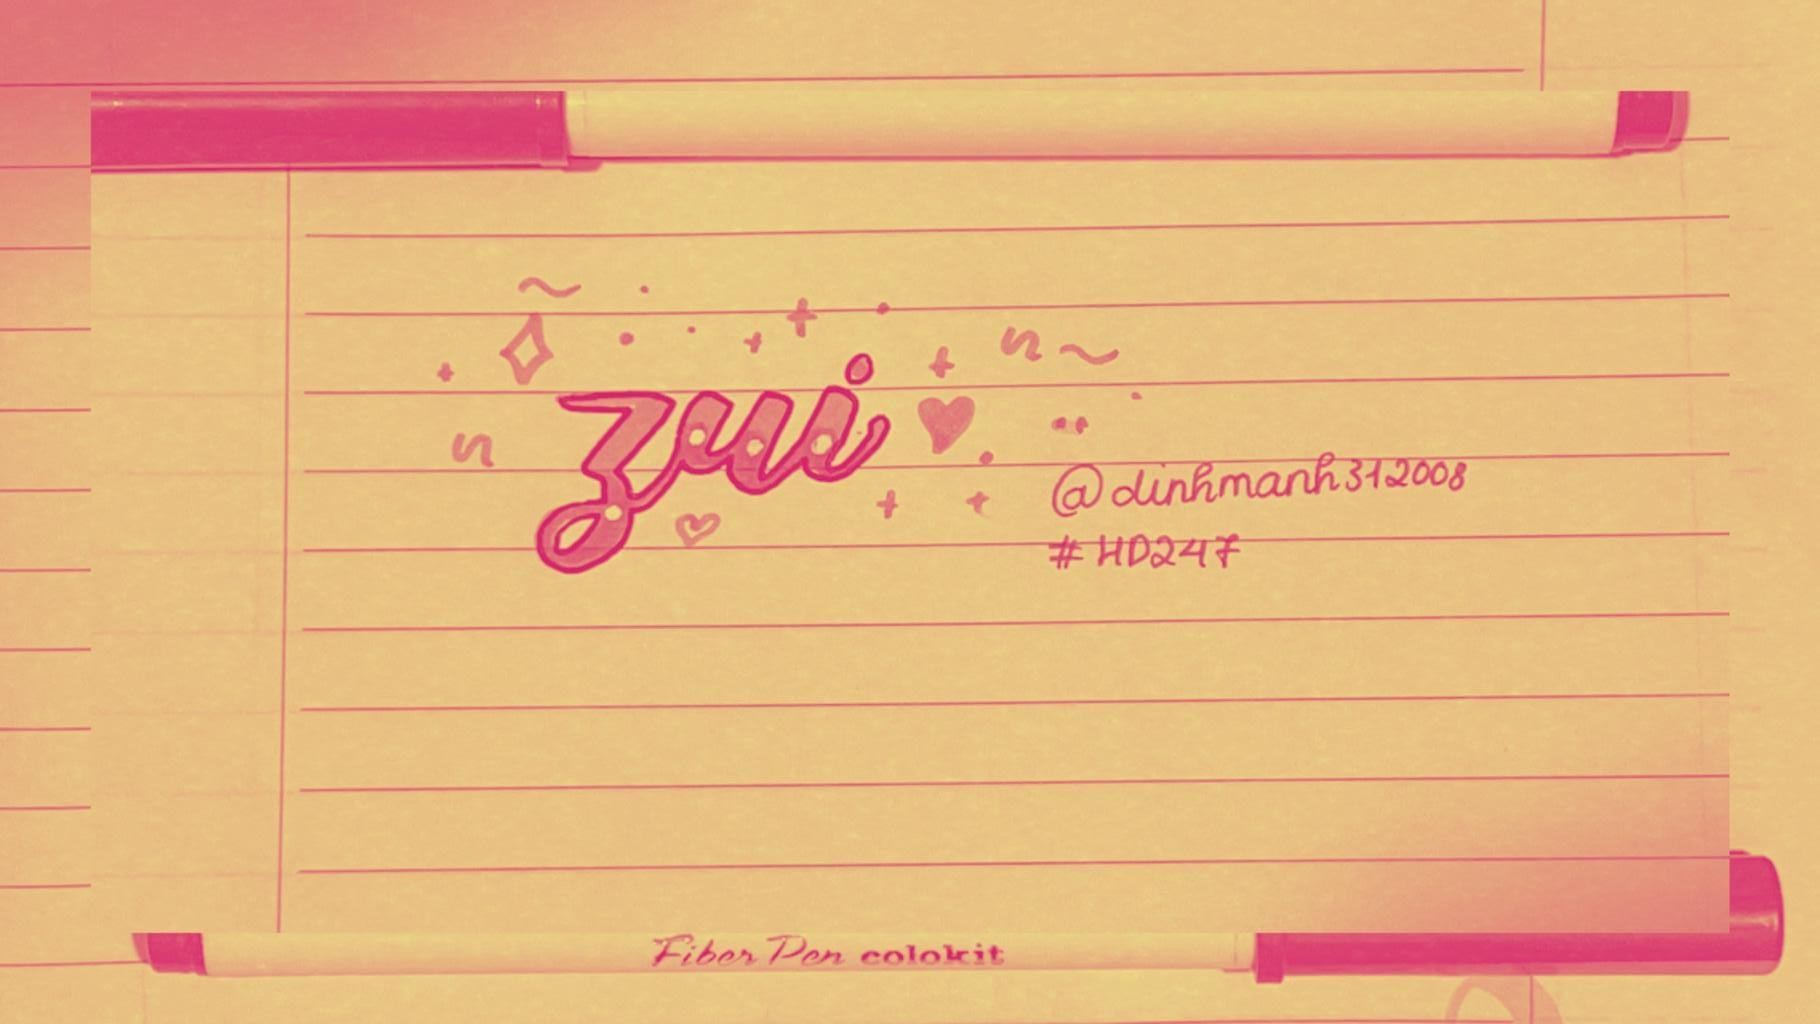 zui
@dinhmanh312008
#HD247
Fiber Pen colokit